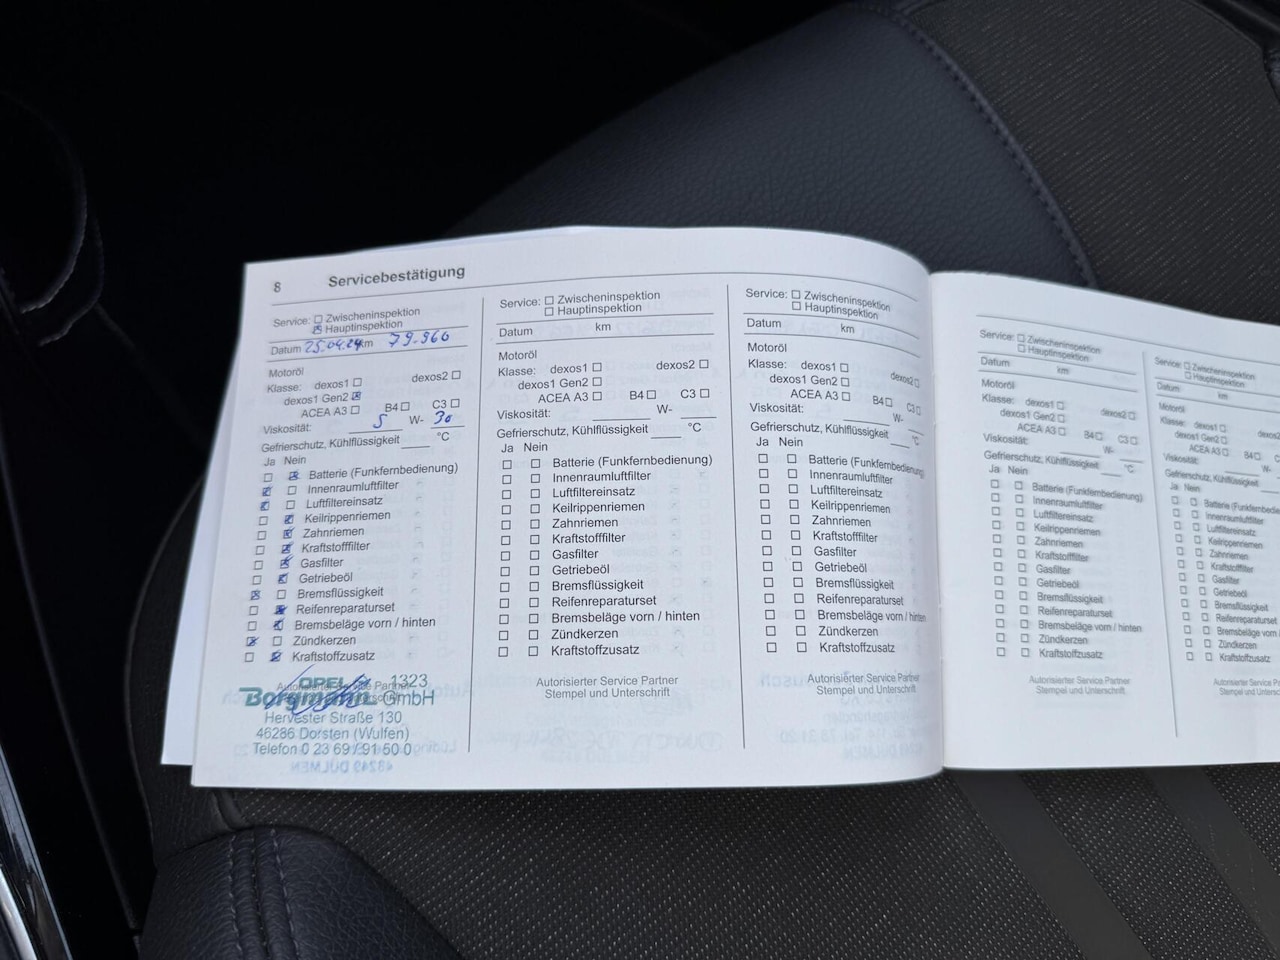 8 Servicebestätigung
Service: ☐ Zwischeninspektion
☒ Hauptinspektion
Datum 25.04.24 km 79.960
Motoröl
Klasse: dexos1 ☐ dexos2 ☐
dexos1 Gen2 ☒
ACEA A3 ☐ B4 ☐ C3 ☐
Viskosität: 5 W- 30
Gefrierschutz, Kühlflüssigkeit ____ °C
Ja Nein
☐ ☒ Batterie (Funkfernbedienung)
☒ ☐ Innenraumluftfilter
☒ ☐ Luftfiltereinsatz
☐ ☒ Keilrippenriemen
☐ ☒ Zahnriemen
☐ ☒ Kraftstofffilter
☐ ☒ Gasfilter
☐ ☒ Getriebeöl
☒ ☐ Bremsflüssigkeit
☐ ☒ Reifenreparaturset
☐ ☒ Bremsbeläge vorn / hinten
☒ ☐ Zündkerzen
☐ ☒ Kraftstoffzusatz
Autorisierter Service Partner
OPEL 1323
Borgmann GmbH
Hervester Straße 130
46286 Dorsten (Wulfen)
Telefon 0 23 69 / 91 50 0
Service: ☐ Zwischeninspektion
☐ Hauptinspektion
Datum km
Motoröl
Klasse: dexos1 ☐ dexos2 ☐
dexos1 Gen2 ☐
ACEA A3 ☐ B4 ☐ C3 ☐
Viskosität: ____ W- ____
Gefrierschutz, Kühlflüssigkeit ____ °C
Ja Nein
☐ ☐ Batterie (Funkfernbedienung)
☐ ☐ Innenraumluftfilter
☐ ☐ Luftfiltereinsatz
☐ ☐ Keilrippenriemen
☐ ☐ Zahnriemen
☐ ☐ Kraftstofffilter
☐ ☐ Gasfilter
☐ ☐ Getriebeöl
☐ ☐ Bremsflüssigkeit
☐ ☐ Reifenreparaturset
☐ ☐ Bremsbeläge vorn / hinten
☐ ☐ Zündkerzen
☐ ☐ Kraftstoffzusatz
Autorisierter Service Partner
Stempel und Unterschrift
Service: ☐ Zwischeninspektion
☐ Hauptinspektion
Datum km
Motoröl
Klasse: dexos1 ☐ dexos2 ☐
dexos1 Gen2 ☐
ACEA A3 ☐ B4 ☐ C3 ☐
Viskosität: ____ W- ____
Gefrierschutz, Kühlflüssigkeit ____ °C
Ja Nein
☐ ☐ Batterie (Funkfernbedienung)
☐ ☐ Innenraumluftfilter
☐ ☐ Luftfiltereinsatz
☐ ☐ Keilrippenriemen
☐ ☐ Zahnriemen
☐ ☐ Kraftstofffilter
☐ ☐ Gasfilter
☐ ☐ Getriebeöl
☐ ☐ Bremsflüssigkeit
☐ ☐ Reifenreparaturset
☐ ☐ Bremsbeläge vorn / hinten
☐ ☐ Zündkerzen
☐ ☐ Kraftstoffzusatz
Autorisierter Service Partner
Stempel und Unterschrift
Service: ☐ Zwischeninspektion
☐ Hauptinspektion
Datum km
Motoröl
Klasse: dexos1 ☐ dexos2 ☐
dexos1 Gen2 ☐
ACEA A3 ☐ B4 ☐ C3 ☐
Viskosität: ____ W- ____
Gefrierschutz, Kühlflüssigkeit ____ °C
Ja Nein
☐ ☐ Batterie (Funkfernbedienung)
☐ ☐ Innenraumluftfilter
☐ ☐ Luftfiltereinsatz
☐ ☐ Keilrippenriemen
☐ ☐ Zahnriemen
☐ ☐ Kraftstofffilter
☐ ☐ Gasfilter
☐ ☐ Getriebeöl
☐ ☐ Bremsflüssigkeit
☐ ☐ Reifenreparaturset
☐ ☐ Bremsbeläge vorn / hinten
☐ ☐ Zündkerzen
☐ ☐ Kraftstoffzusatz
Autorisierter Service Partner
Stempel und Unterschrift
Service: ☐ Zwischeninspektion
☐ Hauptinspektion
Datum km
Motoröl
Klasse: dexos1 ☐ dexos2
dexos1 Gen2 ☐
ACEA A3 ☐ B4 ☐ C
Viskosität: ____ W-
Gefrierschutz, Kühlflüssigkeit
Ja Nein
☐ ☐ Batterie (Funkfernbedie
☐ ☐ Innenraumluftfilter
☐ ☐ Luftfiltereinsatz
☐ ☐ Keilrippenriemen
☐ ☐ Zahnriemen
☐ ☐ Kraftstofffilter
☐ ☐ Gasfilter
☐ ☐ Getriebeöl
☐ ☐ Bremsflüssigkeit
☐ ☐ Reifenreparaturset
☐ ☐ Bremsbeläge vorn / hinten
☐ ☐ Zündkerzen
☐ ☐ Kraftstoffzusatz
Autorisierter Service Par
Stempel und Unterschrift